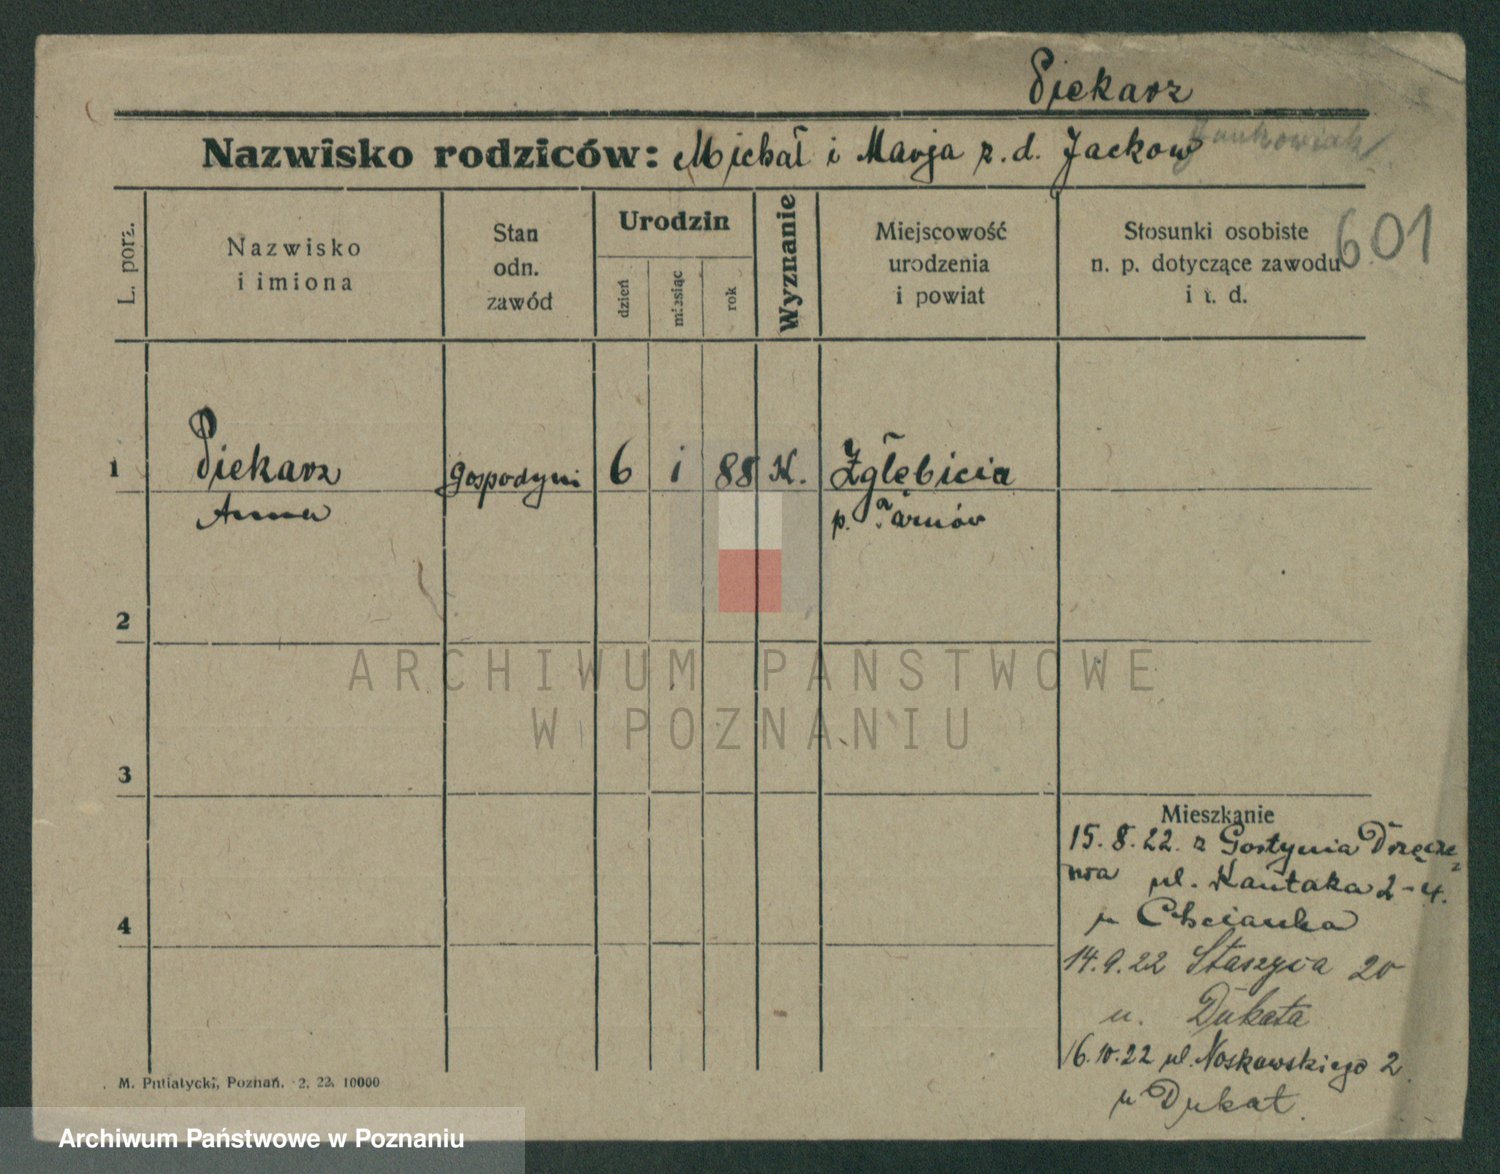 Piekarz
Nazwisko rodziców: Michał i Marja z. d. Jackow
Jankowiak
601
L. porz.
Nazwisko
i imiona
Stan
odn.
zawód
Urodzin
dzień
miesiąc
rok
Wyznanie
Miejscowość
urodzenia
i powiat
Stosunki osobiste
n. p. dotyczące zawodu
i t. d.
1
Piekarz
gospodyni
6
i
88
K.
Zgłebicia
Anna
p. Tarnów
2
3
4
Mieszkanie
15. 8. 22. z Gostynia
ul. Kantaka 2-4.
u
14. 9. 22 Staszyca 20
u. Dukata
16. 10. 22 ul. Noskowskiego 2
u Dukat.
M. Putiatycki, Poznań. 2. 22. 10000
ARCHIWUM PAŃSTWOWE
W POZNANIU
Archiwum Państwowe w Poznaniu